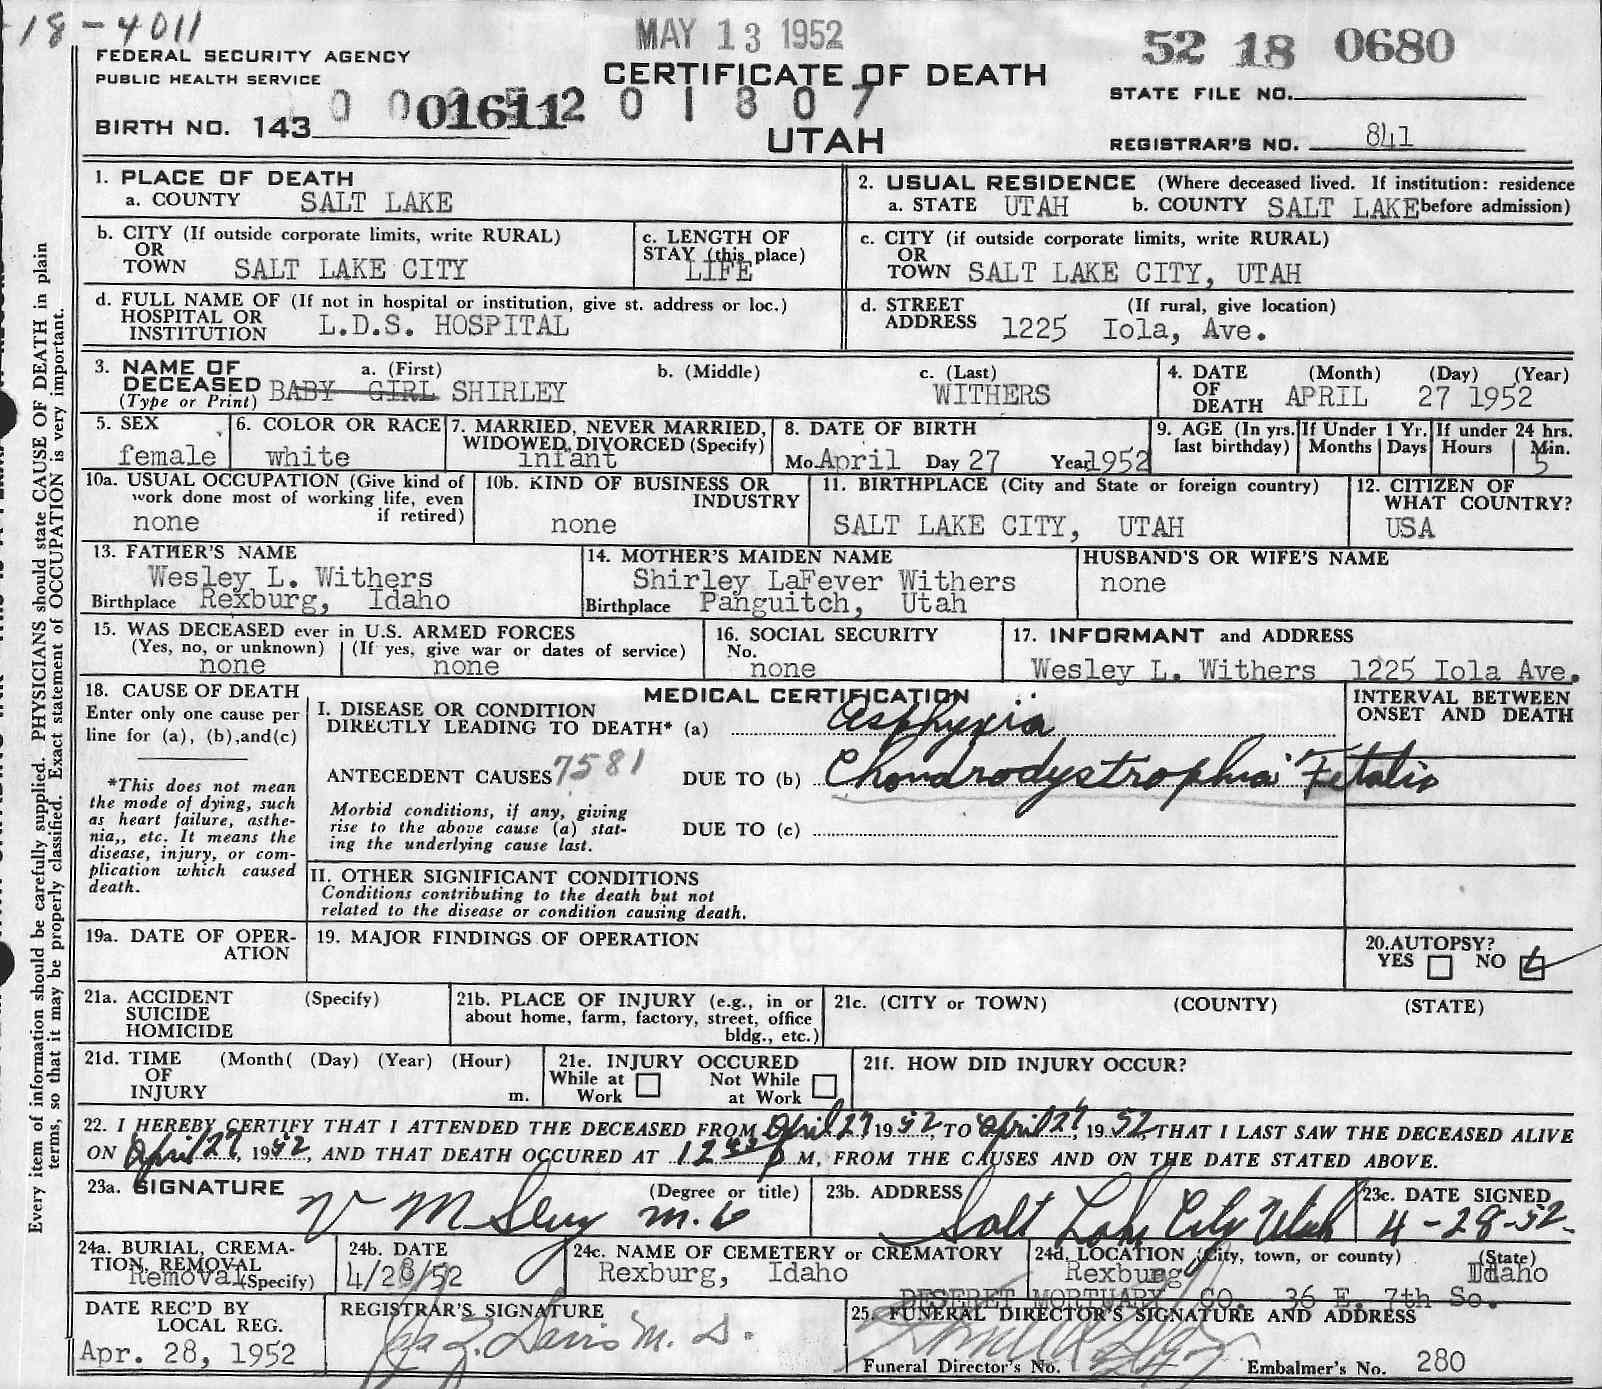 18-4011
MAY 13 1952
52 18 0680
FEDERAL SECURITY AGENCY
PUBLIC HEALTH SERVICE
CERTIFICATE OF DEATH
STATE FILE NO.
BIRTH NO. 143
UTAH
REGISTRAR'S NO. 841
1. PLACE OF DEATH
a. COUNTY SALT LAKE
2. USUAL RESIDENCE (Where deceased lived. If institution: residence
a. STATE UTAH b. COUNTY SALT LAKE before admission)
b. CITY (If outside corporate limits, write RURAL)
OR
TOWN SALT LAKE CITY
c. LENGTH OF
STAY (this place)
LIFE
c. CITY (if outside corporate limits, write RURAL)
OR
TOWN SALT LAKE CITY, UTAH
d. FULL NAME OF (If not in hospital or institution, give st. address or loc.)
HOSPITAL OR
INSTITUTION L.D.S. HOSPITAL
d. STREET (If rural, give location)
ADDRESS 1225 Iola, Ave.
3. NAME OF a. (First) b. (Middle) c. (Last)
DECEASED BABY GIRL SHIRLEY WITHERS
(Type or Print)
4. DATE (Month) (Day) (Year)
OF
DEATH APRIL 27 1952
5. SEX
female
6. COLOR OR RACE
white
7. MARRIED, NEVER MARRIED,
WIDOWED, DIVORCED (Specify)
infant
8. DATE OF BIRTH
Mo. April Day 27 Year 1952
9. AGE (In yrs. last birthday)
If Under 1 Yr.
Months Days
If under 24 hrs.
Hours Min.
5
10a. USUAL OCCUPATION (Give kind of
work done most of working life, even
if retired)
none
10b. KIND OF BUSINESS OR
INDUSTRY
none
11. BIRTHPLACE (City and State or foreign country)
SALT LAKE CITY, UTAH
12. CITIZEN OF
WHAT COUNTRY?
USA
13. FATHER'S NAME
Wesley L. Withers
Birthplace Rexburg, Idaho
14. MOTHER'S MAIDEN NAME
Shirley LaFever Withers
Birthplace Panguitch, Utah
HUSBAND'S OR WIFE'S NAME
none
15. WAS DECEASED ever in U.S. ARMED FORCES
(Yes, no, or unknown) (If yes, give war or dates of service)
none none
16. SOCIAL SECURITY
No.
none
17. INFORMANT and ADDRESS
Wesley L. Withers 1225 Iola Ave.
18. CAUSE OF DEATH
Enter only one cause per
line for (a), (b), and (c)
*This does not mean
the mode of dying, such
as heart failure, asthe-
nia,, etc. It means the
disease, injury, or com-
plication which caused
death.
MEDICAL CERTIFICATION
I. DISEASE OR CONDITION
DIRECTLY LEADING TO DEATH* (a) Asphyxia
ANTECEDENT CAUSES 7581 DUE TO (b) Chondrodystrophia Fetalis
Morbid conditions, if any, giving
rise to the above cause (a) stat-
ing the underlying cause last.
DUE TO (c)
INTERVAL BETWEEN
ONSET AND DEATH
II. OTHER SIGNIFICANT CONDITIONS
Conditions contributing to the death but not
related to the disease or condition causing death.
19a. DATE OF OPER-
ATION
19. MAJOR FINDINGS OF OPERATION
20. AUTOPSY?
YES NO
21a. ACCIDENT (Specify)
SUICIDE
HOMICIDE
21b. PLACE OF INJURY (e.g., in or
about home, farm, factory, street, office
bldg., etc.)
21c. (CITY or TOWN) (COUNTY) (STATE)
21d. TIME (Month( (Day) (Year) (Hour)
OF
INJURY m.
21e. INJURY OCCURED
While at Work
Not While at Work
21f. HOW DID INJURY OCCUR?
22. I HEREBY CERTIFY THAT I ATTENDED THE DECEASED FROM April 27 1952, TO April 27, 1952, THAT I LAST SAW THE DECEASED ALIVE
ON April 27, 1952, AND THAT DEATH OCCURED AT P M, FROM THE CAUSES AND ON THE DATE STATED ABOVE.
23a. SIGNATURE (Degree or title)
M.D.
23b. ADDRESS
Salt Lake City Utah
23c. DATE SIGNED
4-28-52
24a. BURIAL, CREMA-
TION, REMOVAL
Removal (Specify)
24b. DATE
4/28/52
24c. NAME OF CEMETERY or CREMATORY
Rexburg, Idaho
24d. LOCATION (City, town, or county) (State)
Rexburg Idaho
DESERET MORTUARY CO. 36 E. 7th So.
DATE REC'D BY
LOCAL REG.
Apr. 28, 1952
REGISTRAR'S SIGNATURE
Davis M.D.
25. FUNERAL DIRECTOR'S SIGNATURE AND ADDRESS
Funeral Director's No. Embalmer's No. 280
Every item of information should be carefully supplied. PHYSICIANS should state CAUSE OF DEATH in plain
terms, so that it may be properly classified. Exact statement of OCCUPATION is very important.